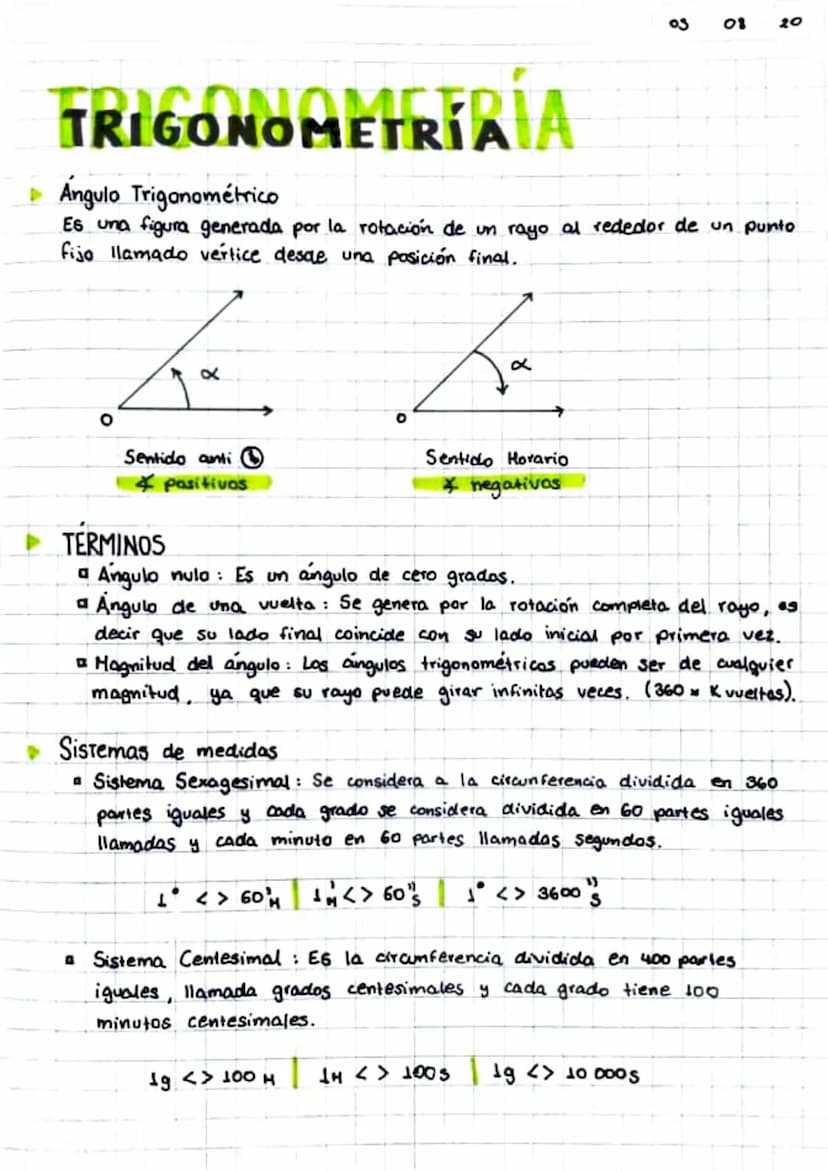 03 08 20
TRIGONOMETRÍA
Ángulo Trigonométrico
Es una figura generada por la rotación de un rayo al rededor de un punto
fijo llamado vértice desde una posición final.
α
O
α
O
Sentido anti
Sentido Horario
∡ positivos
∡ negativos
TÉRMINOS
Ángulo nulo : Es un ángulo de cero grados.
Ángulo de una vuelta : Se genera por la rotación completa del rayo, es
decir que su lado final coincide con su lado inicial por primera vez.
Magnitud del ángulo : Los ángulos trigonométricos pueden ser de cualquier
magnitud, ya que su rayo puede girar infinitas veces. (360 × K vueltas).
Sistemas de medidas
Sistema Sexagesimal : Se considera a la circunferencia dividida en 360
partes iguales y cada grado se considera dividida en 60 partes iguales
llamadas y cada minuto en 60 partes llamadas segundos.
1° <> 60' M | 1' M <> 60'' S | 1° <> 3600'' S
Sistema Centesimal : Es la circumferencia dividida en 400 partes
iguales, llamada grados centesimales y cada grado tiene 100
minutos centesimales.
1g <> 100 M | 1M <> 100s | 1g <> 10 000s